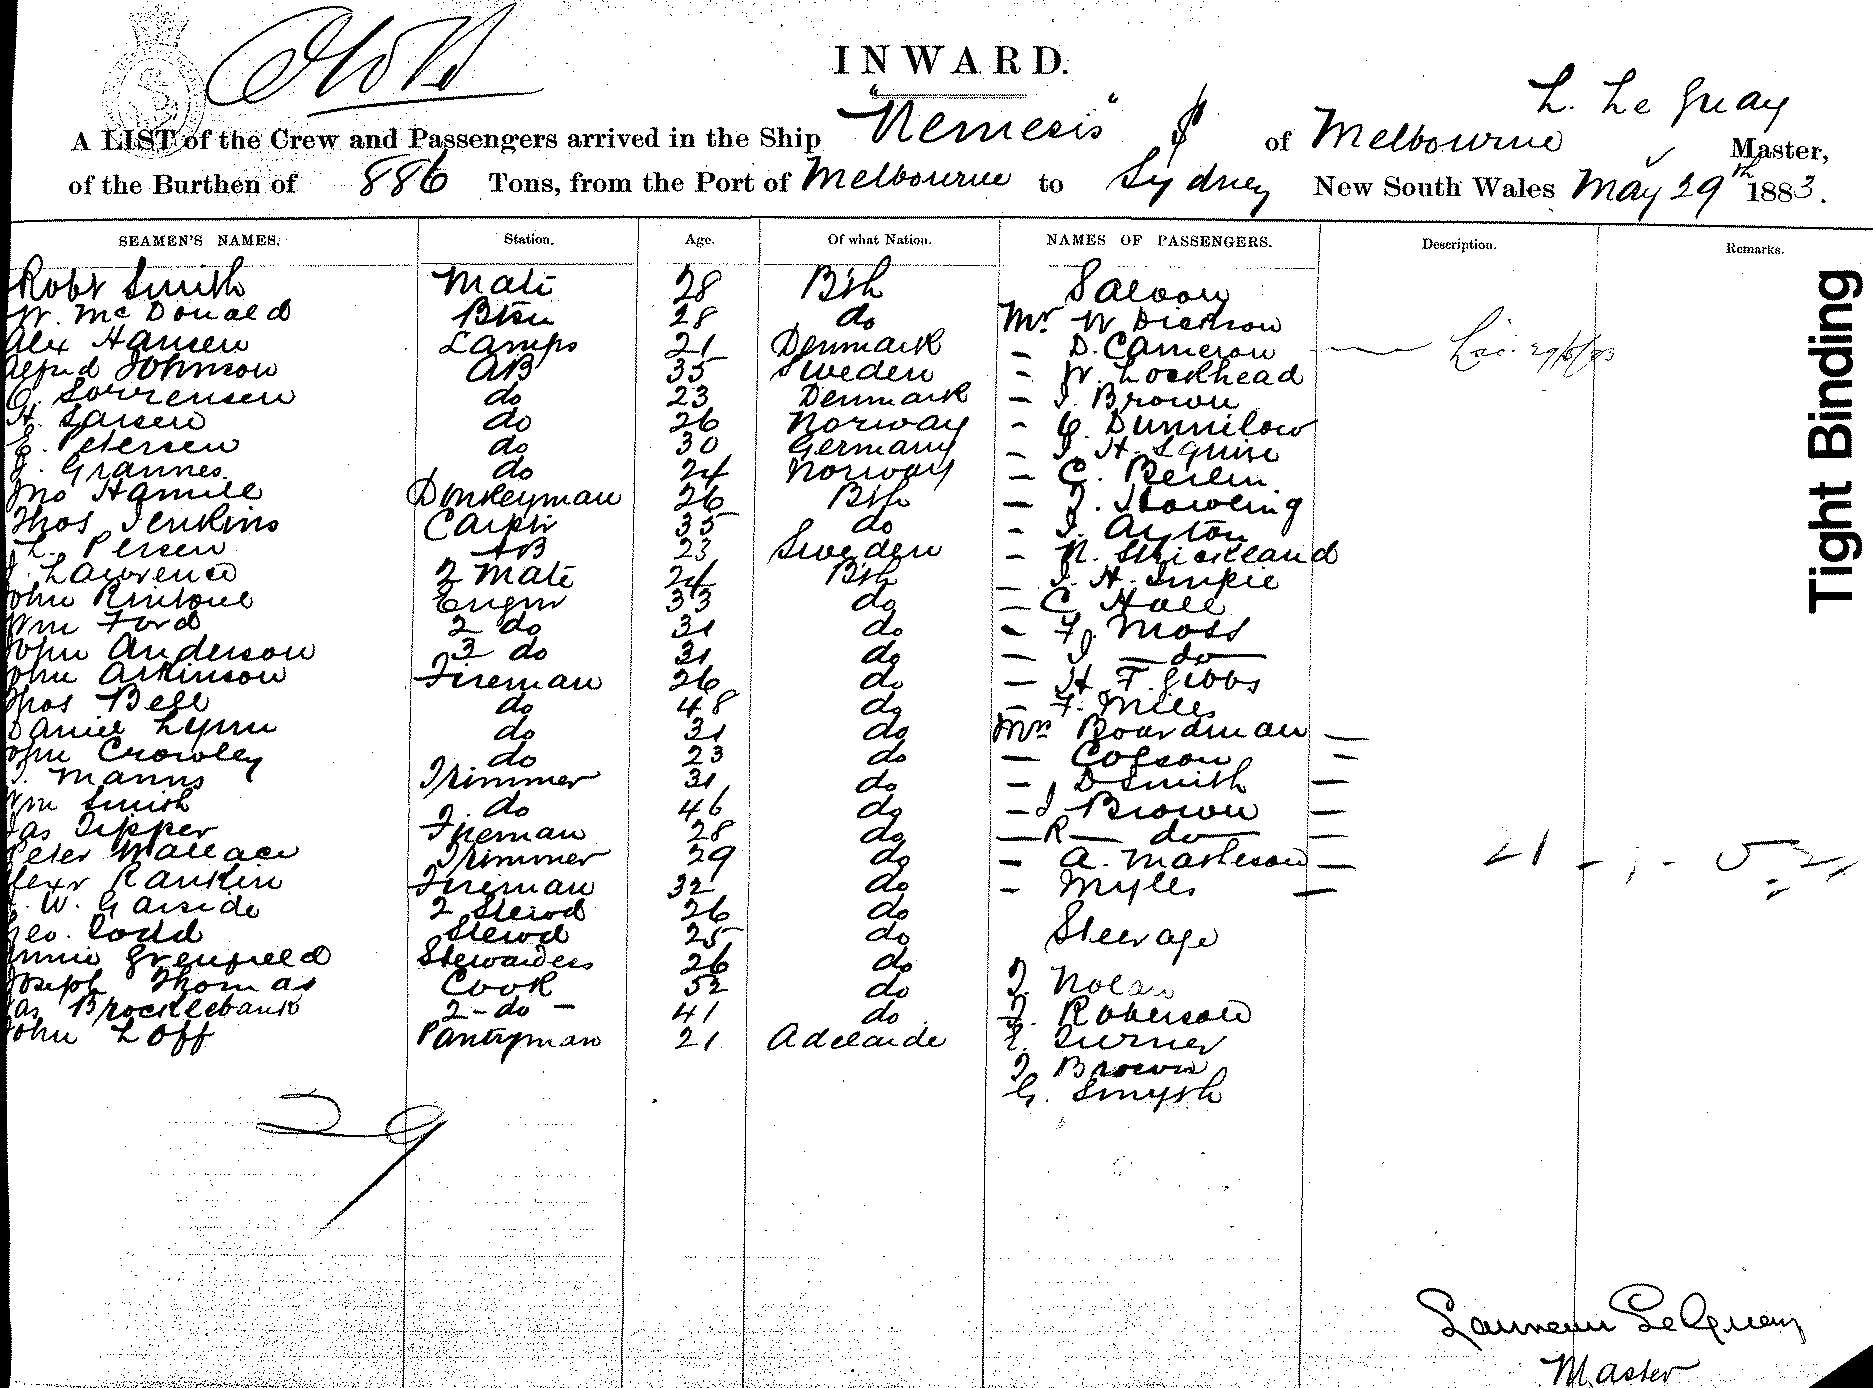 INWARD.
L. Le Guay
A LIST of the Crew and Passengers arrived in the Ship "Nemesis" of Melbourne Master,
of the Burthen of 886 Tons, from the Port of Melbourne to Sydney New South Wales May 29th 1883.
SEAMEN'S NAMES. Station. Age. Of what Nation. NAMES OF PASSENGERS. Description. Remarks.
Robt Smith Mate 28 Bsh Saloon
W. McDonald Btsn 28 do Mr W Dickson
Alex Hansen Lamps 21 Denmark — D. Cameron
Alfred Johnson AB 35 Sweden — W. Lockhead
Sorrensen do 23 Denmark — J. Brown
H. Larsen do 26 Norway —
E. Petersen do 30 Germany — J. H. Squire
Grannes do 24 Norway — C. Berlin
Jno Hamill Donkeyman 26 Bsh —
Thos Jenkins Carptr 35 do —
L. Persen AB 23 Sweden — Strickland
J. Lawrence 2 Mate 24 Bsh —
John Rintoul Engnr 33 do — C Hall
Wm Ford 2 do 31 do — Moss
John Anderson 3 do 31 do — J — do —
John Atkinson Fireman 26 do — H F. Gibbs
Thos Bell do 48 do — F. Mills
Daniel Lynn do 31 do Mrs Boardman —
John Crowley do 23 do — Colson —
Manns Trimmer 31 do — D Smith —
Wm Smith do 46 do — J Brown —
Jas Tipper Fireman 28 do — R — do —
Peter Wallace Trimmer 29 do — A. Matheson — 21
Alexr Rankin Fireman 32 do — Mylls —
W. Garside 2 Stewd 26 do
Geo. Codd Stewd 25 do Steerage
Annie Grenfield Stewardess 26 do
Joseph Thomas Cook 52 do J. Nolan
Jas Brocklebank 2 - do - 41 do J. Roberson
John Loff Pantryman 21 Adelaide E. Turner
J Brown
G. Smyth
29
Le Guay
Master
Tight Binding